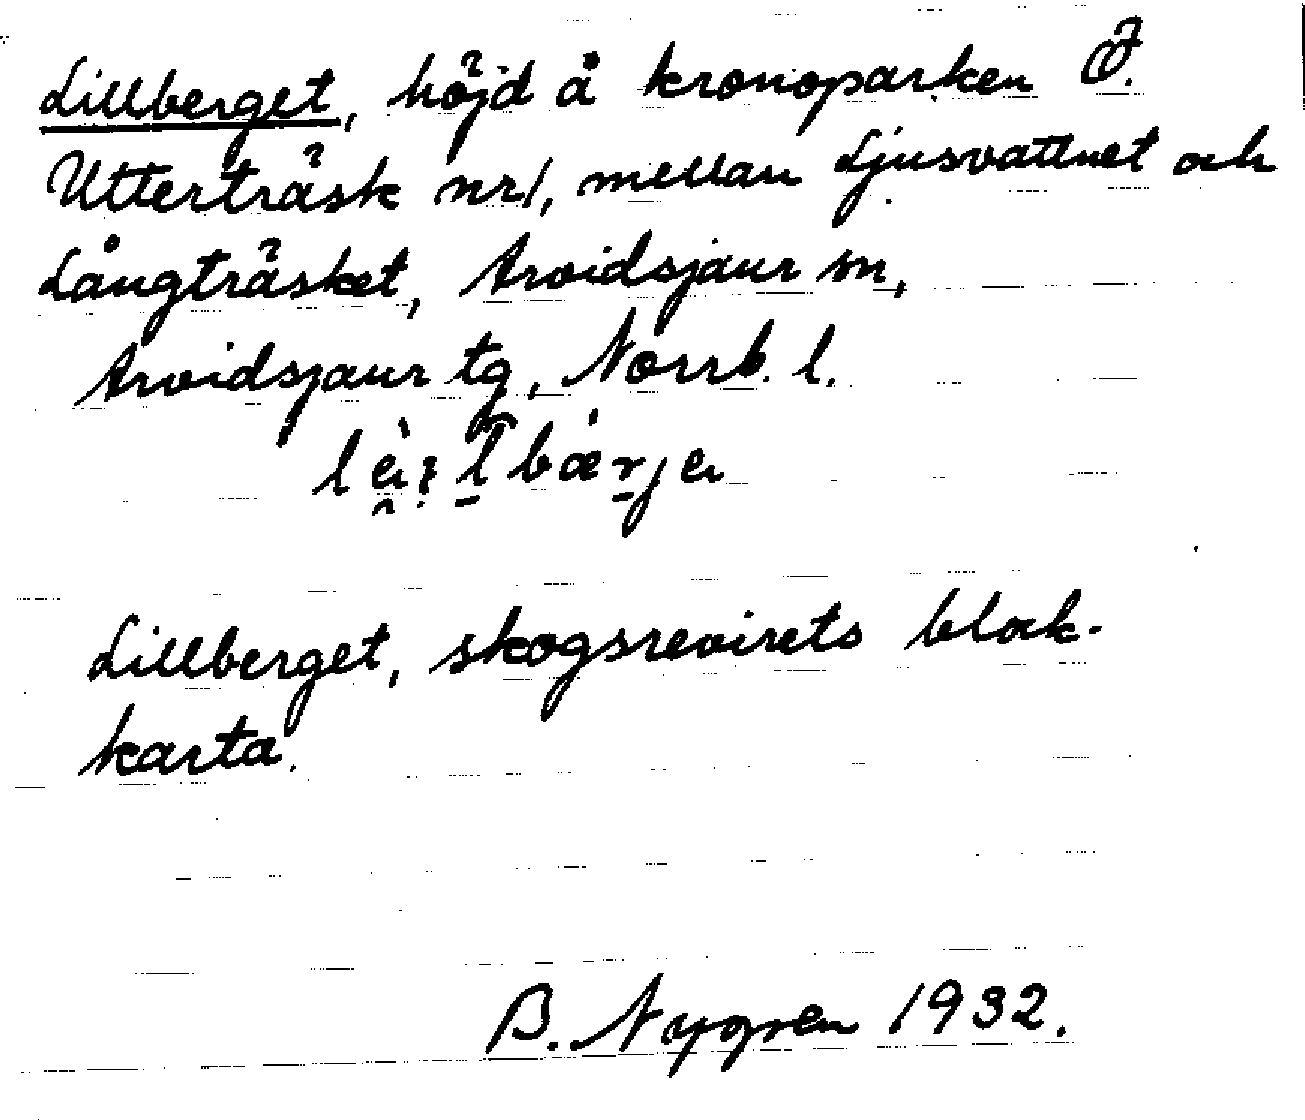 Lillberget, höjd å kronoparken Ö.
Utterträsk nr 1, mellan Ljusvattnet och
Långträsket, Arvidsjaur sn,
Arvidsjaur tg, Norrb. l.
Lillberget, skogsrevirets block-
karta.
B. Nygren 1932.